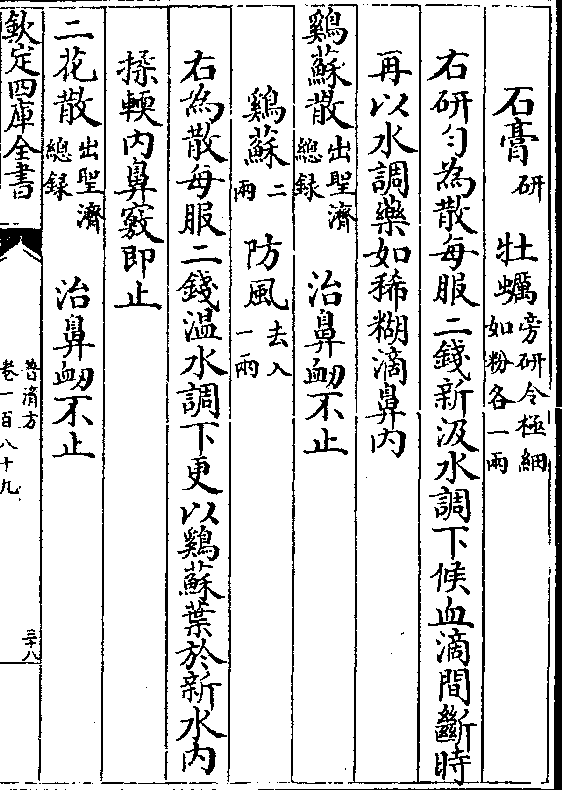 石膏研 牡蠣旁研令極細如粉各一兩
右研勻為散每服二錢新汲水調下候血滴間斷時
再以水調藥如稀糊滴鼻內
鷄蘇散出聖濟總録 治鼻衂不止
鷄蘇二兩 防風去入一兩
右為散每服二錢温水調下更以鷄蘇葉於新水内
揉輭内鼻竅即止
二花散出聖濟總録 治鼻衂不止
欽定四庫全書
普濟方
卷一百八十九
三十八